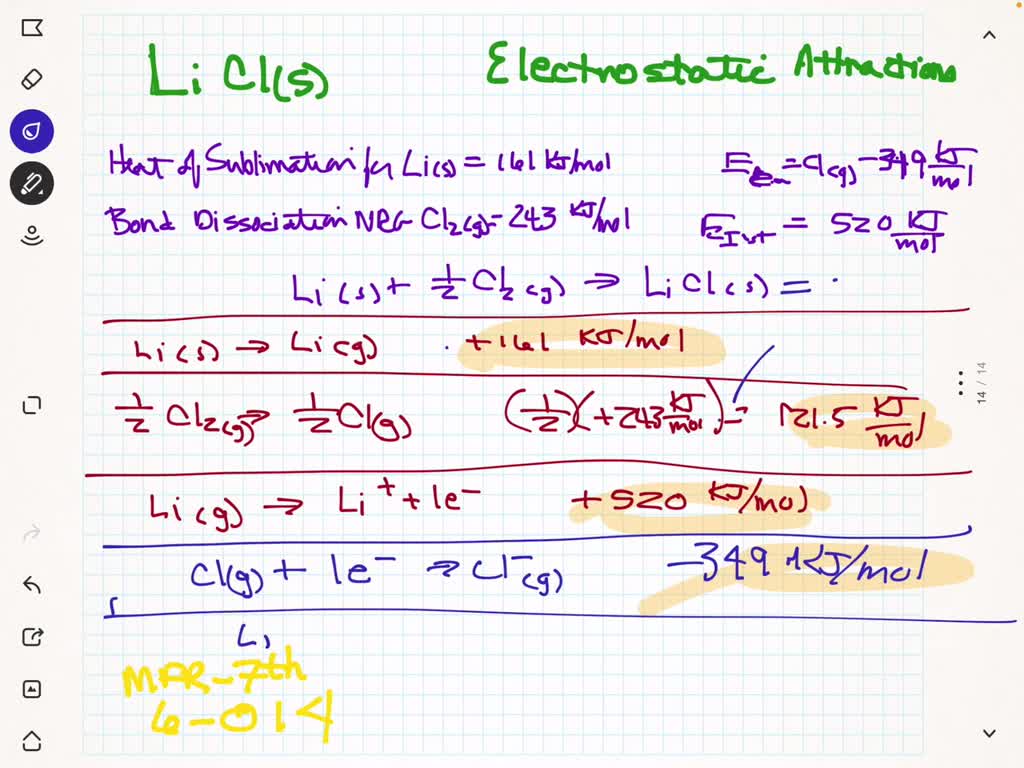 LiCl(s) Electrostatic Attractions
Heat of Sublimation for Li(s) = 161 KJ/mol
E = Cl(g) -349 KJ/mol
Bond Dissociation NRG Cl2(g) = 243 KJ/mol
= 520 KJ/mol
Li(s) + 1/2 Cl2(g) → LiCl(s) =
Li(s) → Li(g) +161 KJ/mol
1/2 Cl2(g) → 1/2 Cl(g) (1/2)(+243 KJ/mol) = 121.5 KJ/mol
Li(g) → Li+ + 1e- +520 KJ/mol
Cl(g) + 1e- → Cl-(g) -349 KJ/mol
Li
MAR-7th
6-014
14 / 14